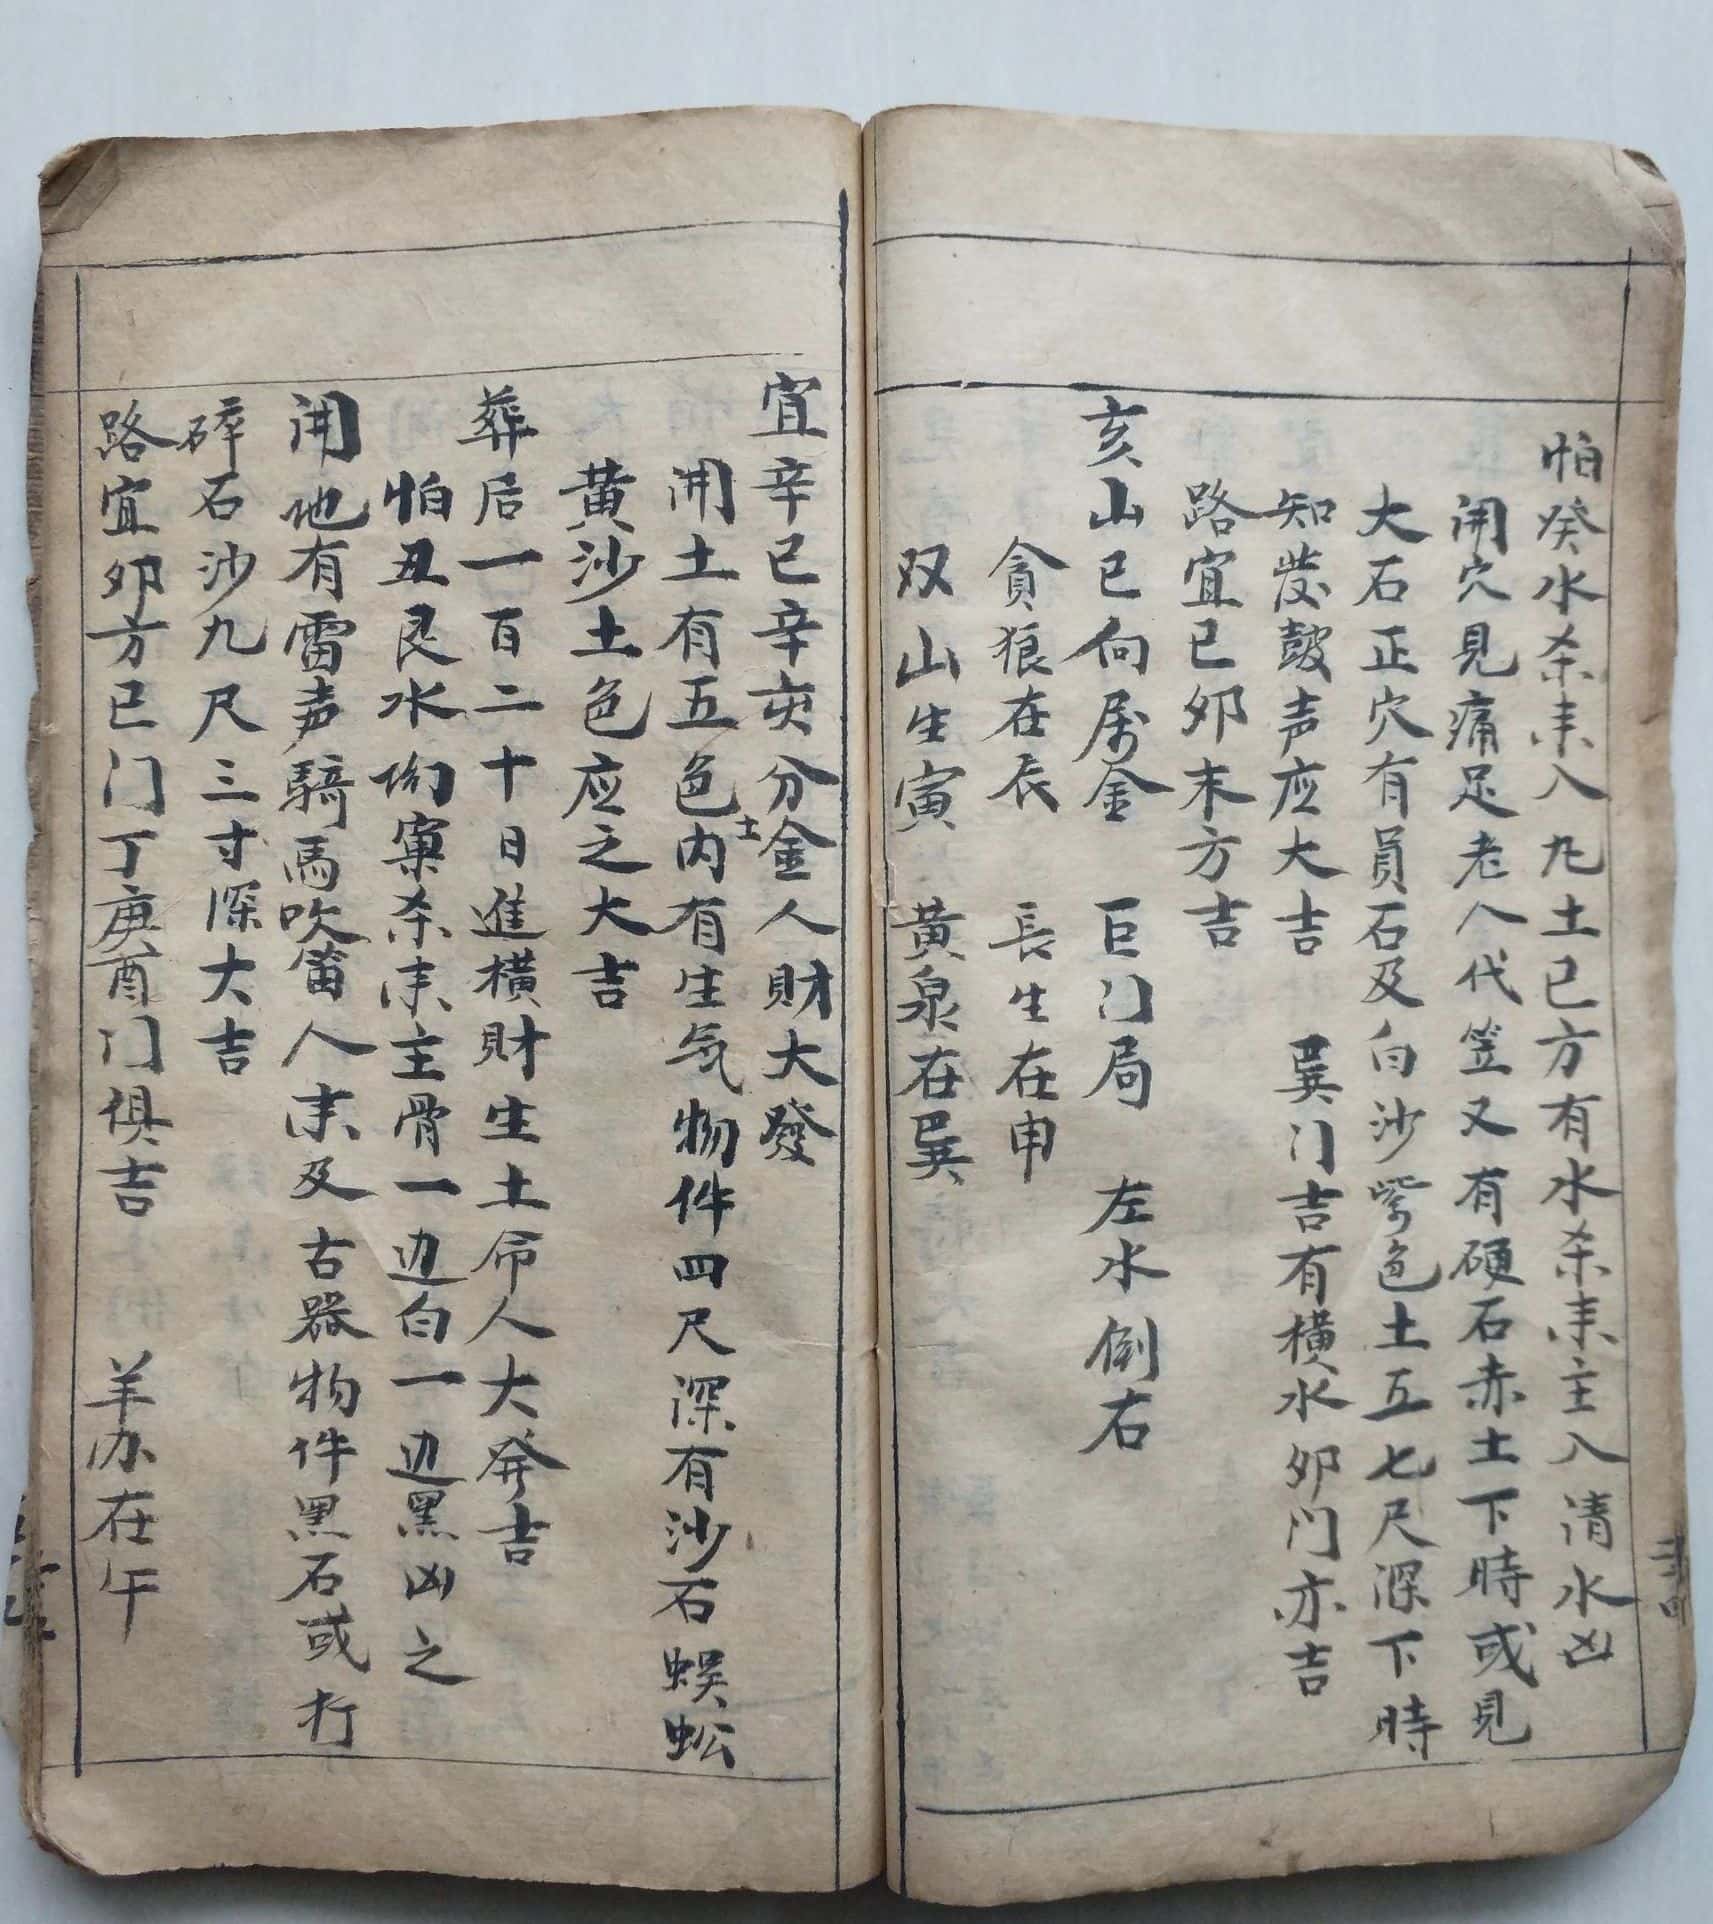 怕癸水杀耒入九土巳方有水杀耒主入清水凶
開穴見痛足老人代笠又有硬石赤土下時或見
大石正穴有員石及白沙紫色土五七尺深下時
知發鼓声应大吉 巽门吉有横水卯门亦吉
路宜巳卯未方吉
亥山巳向属金 巨门局 左水倒右
貪狼在辰 長生在申
双山生寅 黄泉在巽
宜辛巳辛亥分金人財大發
開土有五色内土有生気物件四尺深有沙石蜈蚣
黄沙土色应之大吉
葬后一百二十日進横財生土命人大発吉
怕丑艮水杀耒主骨一边白一边黑凶之
開地有雷声騎馬吹笛人耒及古器物件黑石或打
碎石沙九尺三寸深大吉
路宜卯方巳门丁庚酉门俱吉 羊办在午